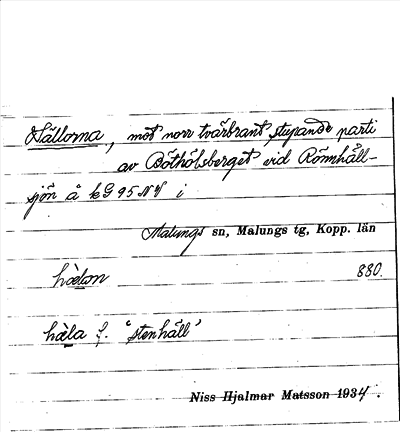 Hällorna, mot norr tvärbrant stupande parti
av Böthölsberget vid Römhåll-
sjön å kG 95 NV i
Malungs sn, Malungs tg, Kopp. län
hælon 880.
hæla f. "stenhäll"
Niss Hjalmar Matsson 1934.